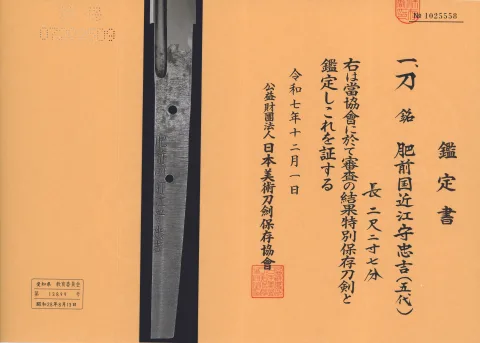 № 1025558
鑑定書
一、刀 銘 肥前国近江守忠吉(五代)
長 二尺二寸七分
右は當協會に於て審査の結果特別保存刀劍と
鑑定しこれを証する
令和七年十二月一日
公益財團法人 日本美術刀劍保存協會
教育委員会